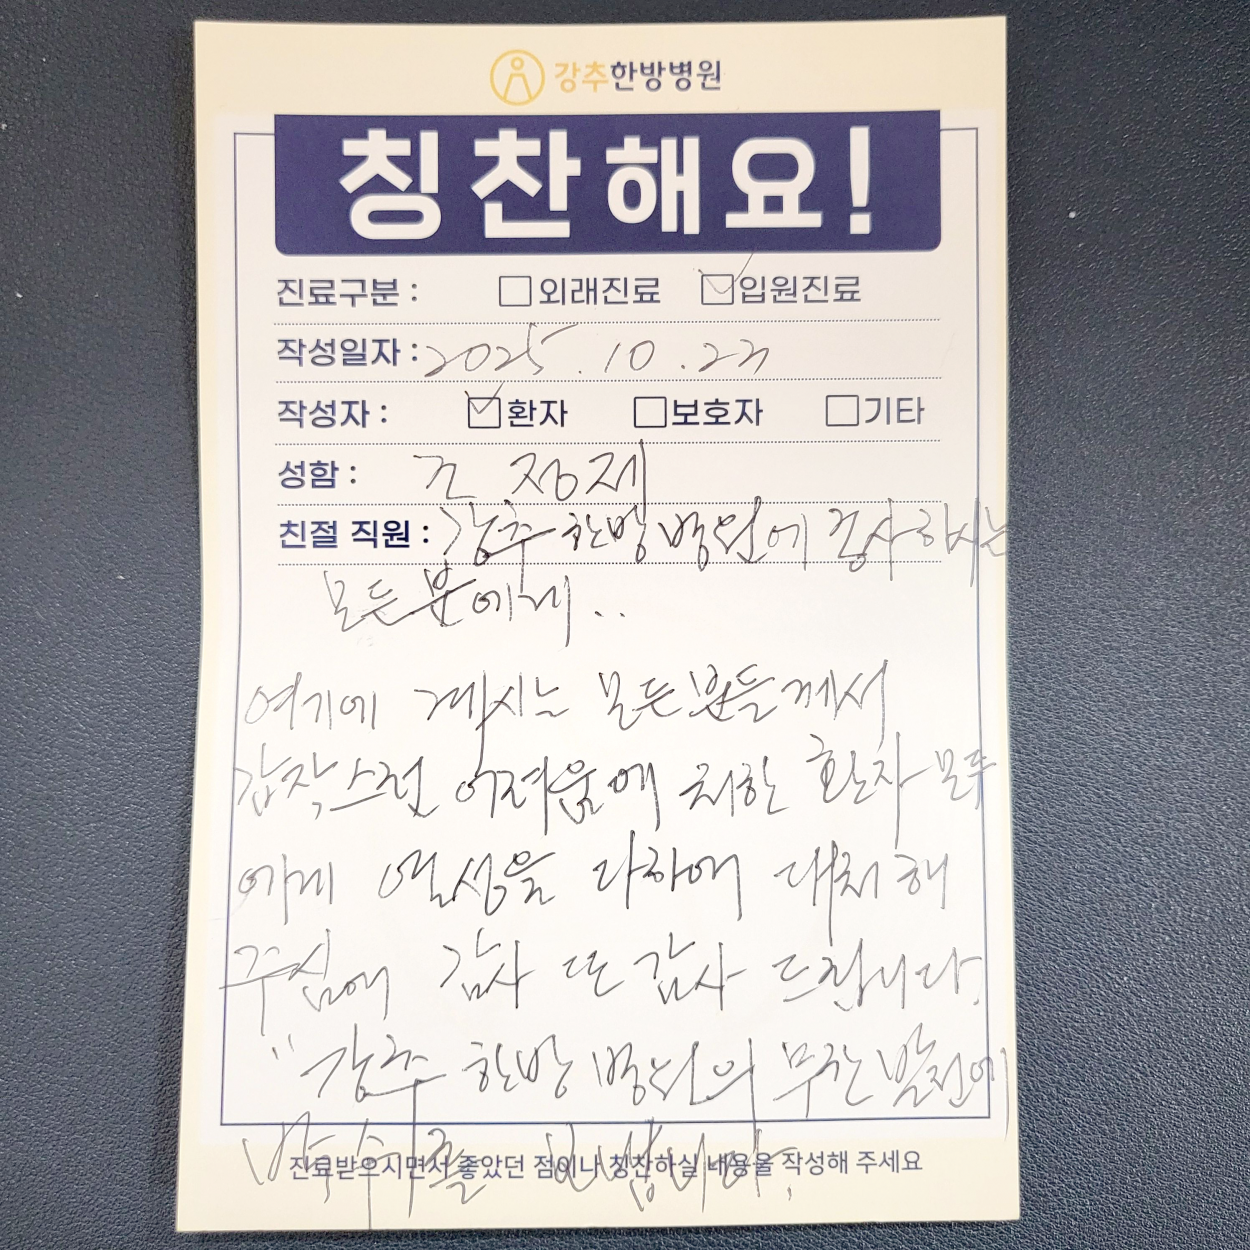 강추한방병원
칭찬해요!
진료구분 : 외래진료 입원진료
작성일자 : 2025.10.23
작성자 : 환자 보호자 기타
성함 : 조정제
친절 직원 : 강추한방병원에 종사하시는
모든분에게..
여기에 계시는 모든분들께서
갑작스런 어려움에 처한 환자모두
에게 열성을 다하여 대처해
주심에 감사 또 감사 드립니다.
"강추 한방 병원의 무한발전에
박수를 보냅니다.
진료받으시면서 좋았던 점이나 칭찬하실 내용을 작성해 주세요